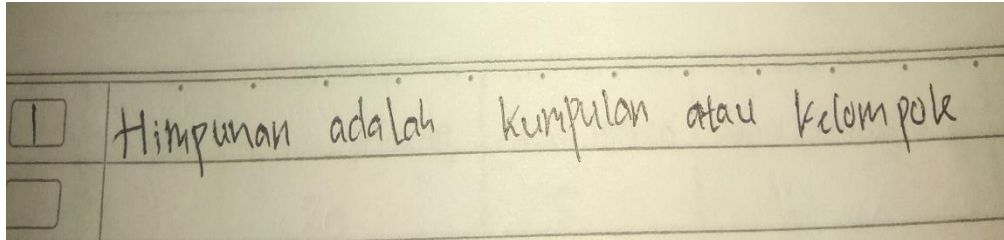 1 Himpunan adalah kumpulan atau kelompok